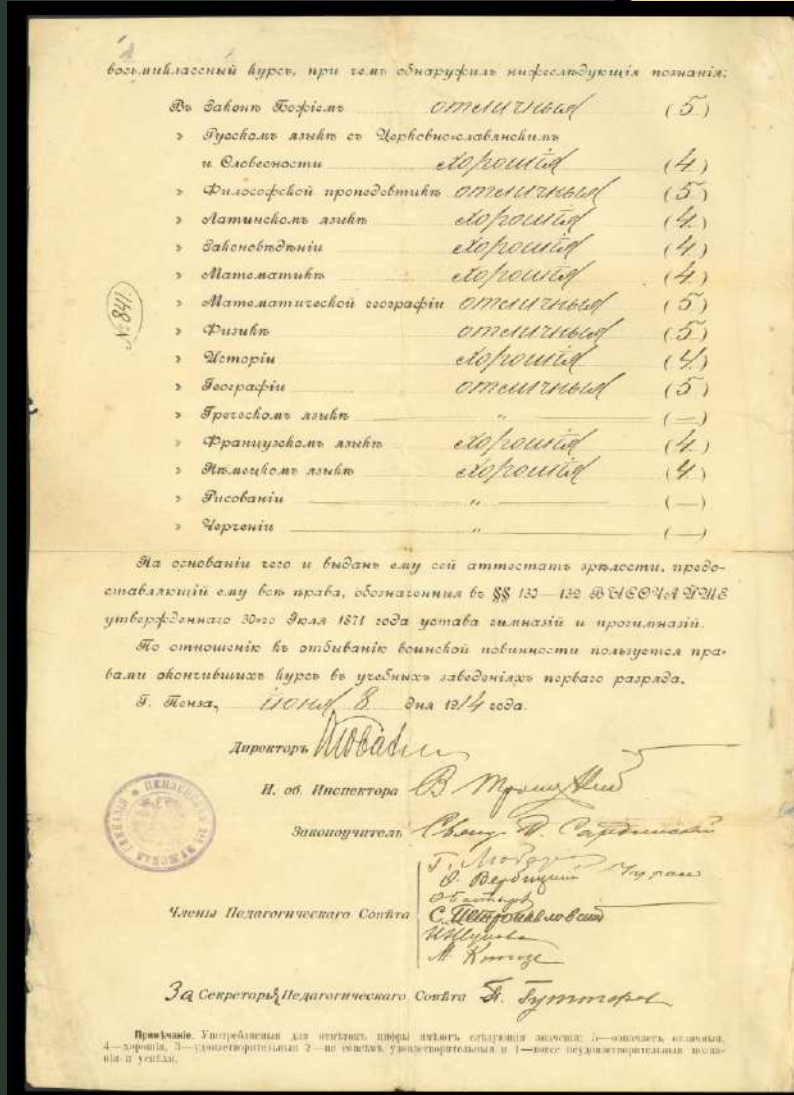 восьмиклассный курсъ, при чемъ обнаружилъ нижеслѣдующія познанія:
Въ Законѣ Божіемъ отличныя (5)
» Русскомъ языкѣ съ Церковно-славянскимъ
и Словесности хорошія (4)
» Философской пропедевтикѣ отличныя (5)
» Латинскомъ языкѣ хорошія (4)
» Законовѣдѣніи хорошія (4)
» Математикѣ хорошія (4)
» Математической географіи отличныя (5)
№ 841.
» Физикѣ отличныя (5)
» Исторіи хорошія (4)
» Географіи отличныя (5)
» Греческомъ языкѣ „ (—)
» Французскомъ языкѣ хорошія (4)
» Нѣмецкомъ языкѣ хорошія (4)
» Рисованіи „ (—)
» Черченіи „ (—)
На основаніи чего и выданъ ему сей аттестатъ зрѣлости, предо-
ставляющій ему всѣ права, обозначенныя въ §§ 130—132 ВЫСОЧАЙШЕ
утвержденнаго 30-го Іюля 1871 года устава гимназій и прогимназій.
По отношенію къ отбыванію воинской повинности пользуется пра-
вами окончившихъ курсъ въ учебныхъ заведеніяхъ перваго разряда.
Г. Пенза, іюня 8 дня 1914 года.
Директоръ
И. об. Инспектора В Троицкій
Законоучитель Свящ. Д. Сардинскій
О. Вербицкій
Члены Педагогическаго Совѣта С. Петропавловскій
За Секретаря Педагогическаго Совѣта
Примѣчаніе. Употребляемыя для отмѣтокъ цифры имѣютъ слѣдующія значенія: 5—означаетъ отличныя,
4—хорошія, 3—удовлетворительныя 2—не совсѣмъ удовлетворительныя и 1—вовсе неудовлетворительныя позна-
нія и успѣхи.
ПЕНЗЕНСКАЯ МУЖСКАЯ ГИМНАЗІЯ